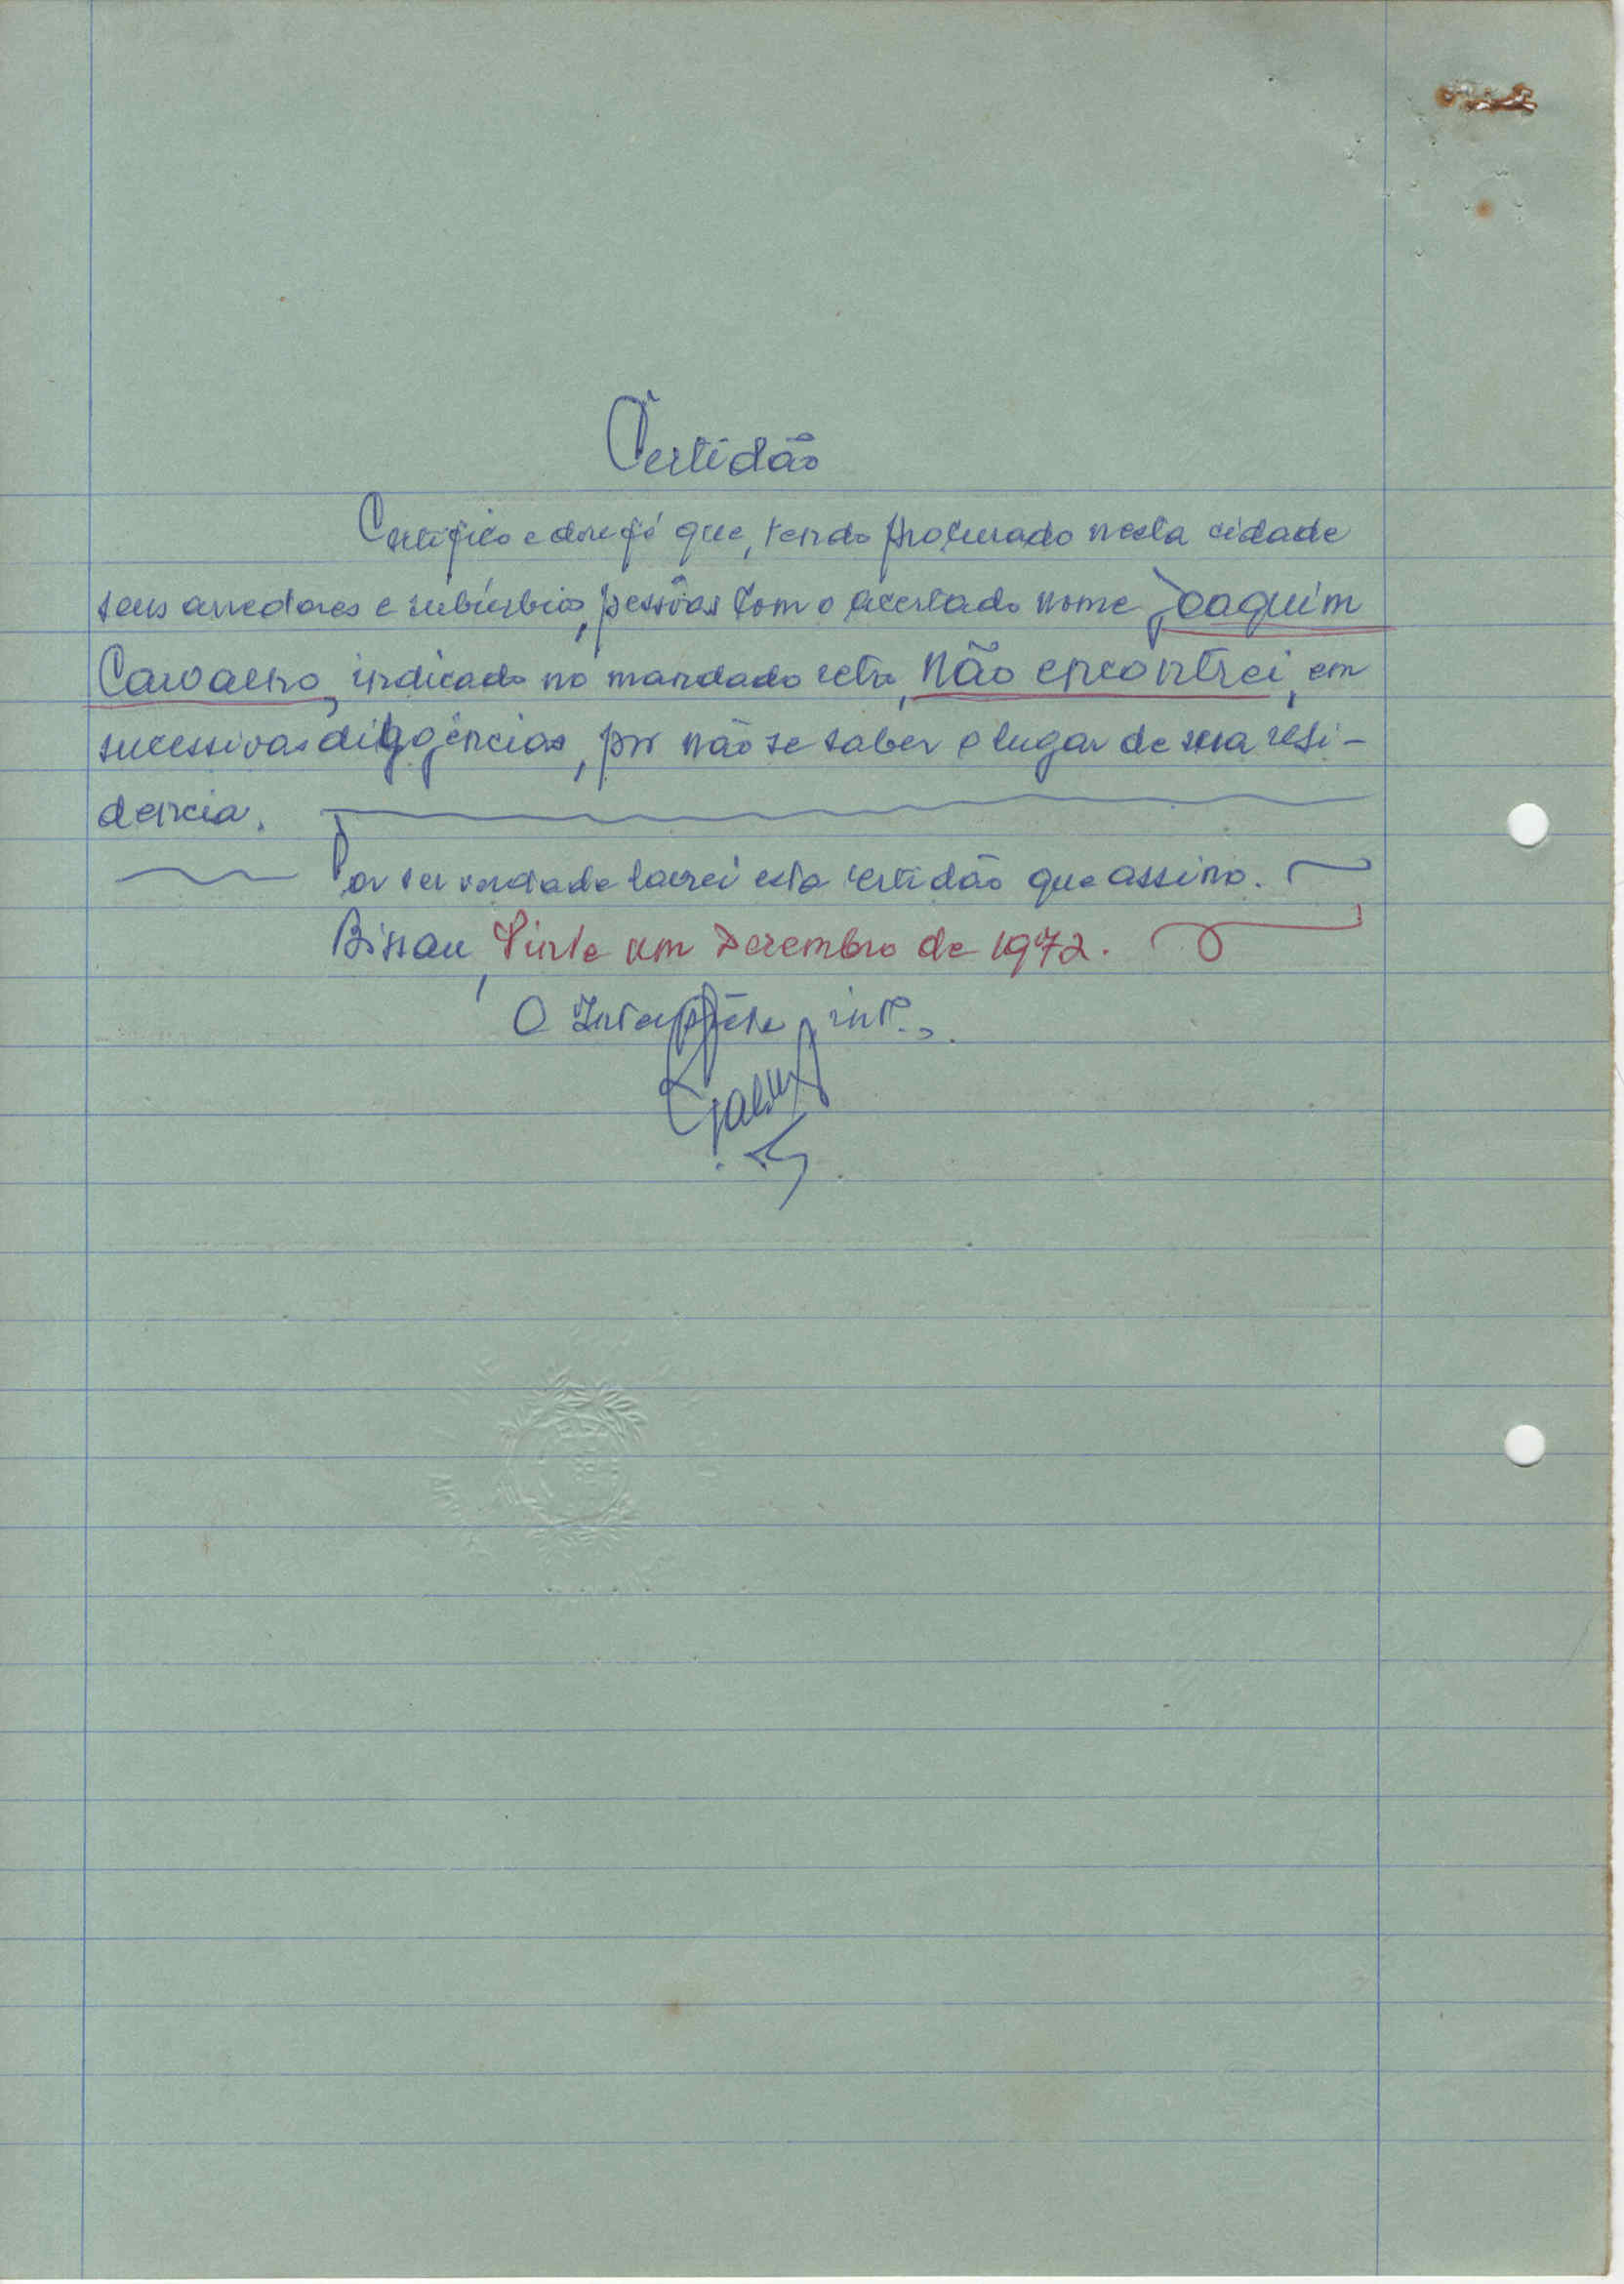 Certidão
Certifico e dou fé que, tendo procurado nesta cidade
seus arredores e subúrbios, pessôas com o acertado nome Joaquim
Carvalho, indicado no mandado retro, não encontrei, em
sucessivas diligências, por não se saber o lugar de sua resi-
dencia.
Por ser verdade lavrei esta certidão que assino.
Bissau, Vinte um Dezembro de 1972.
O Intérpréte, intº.,